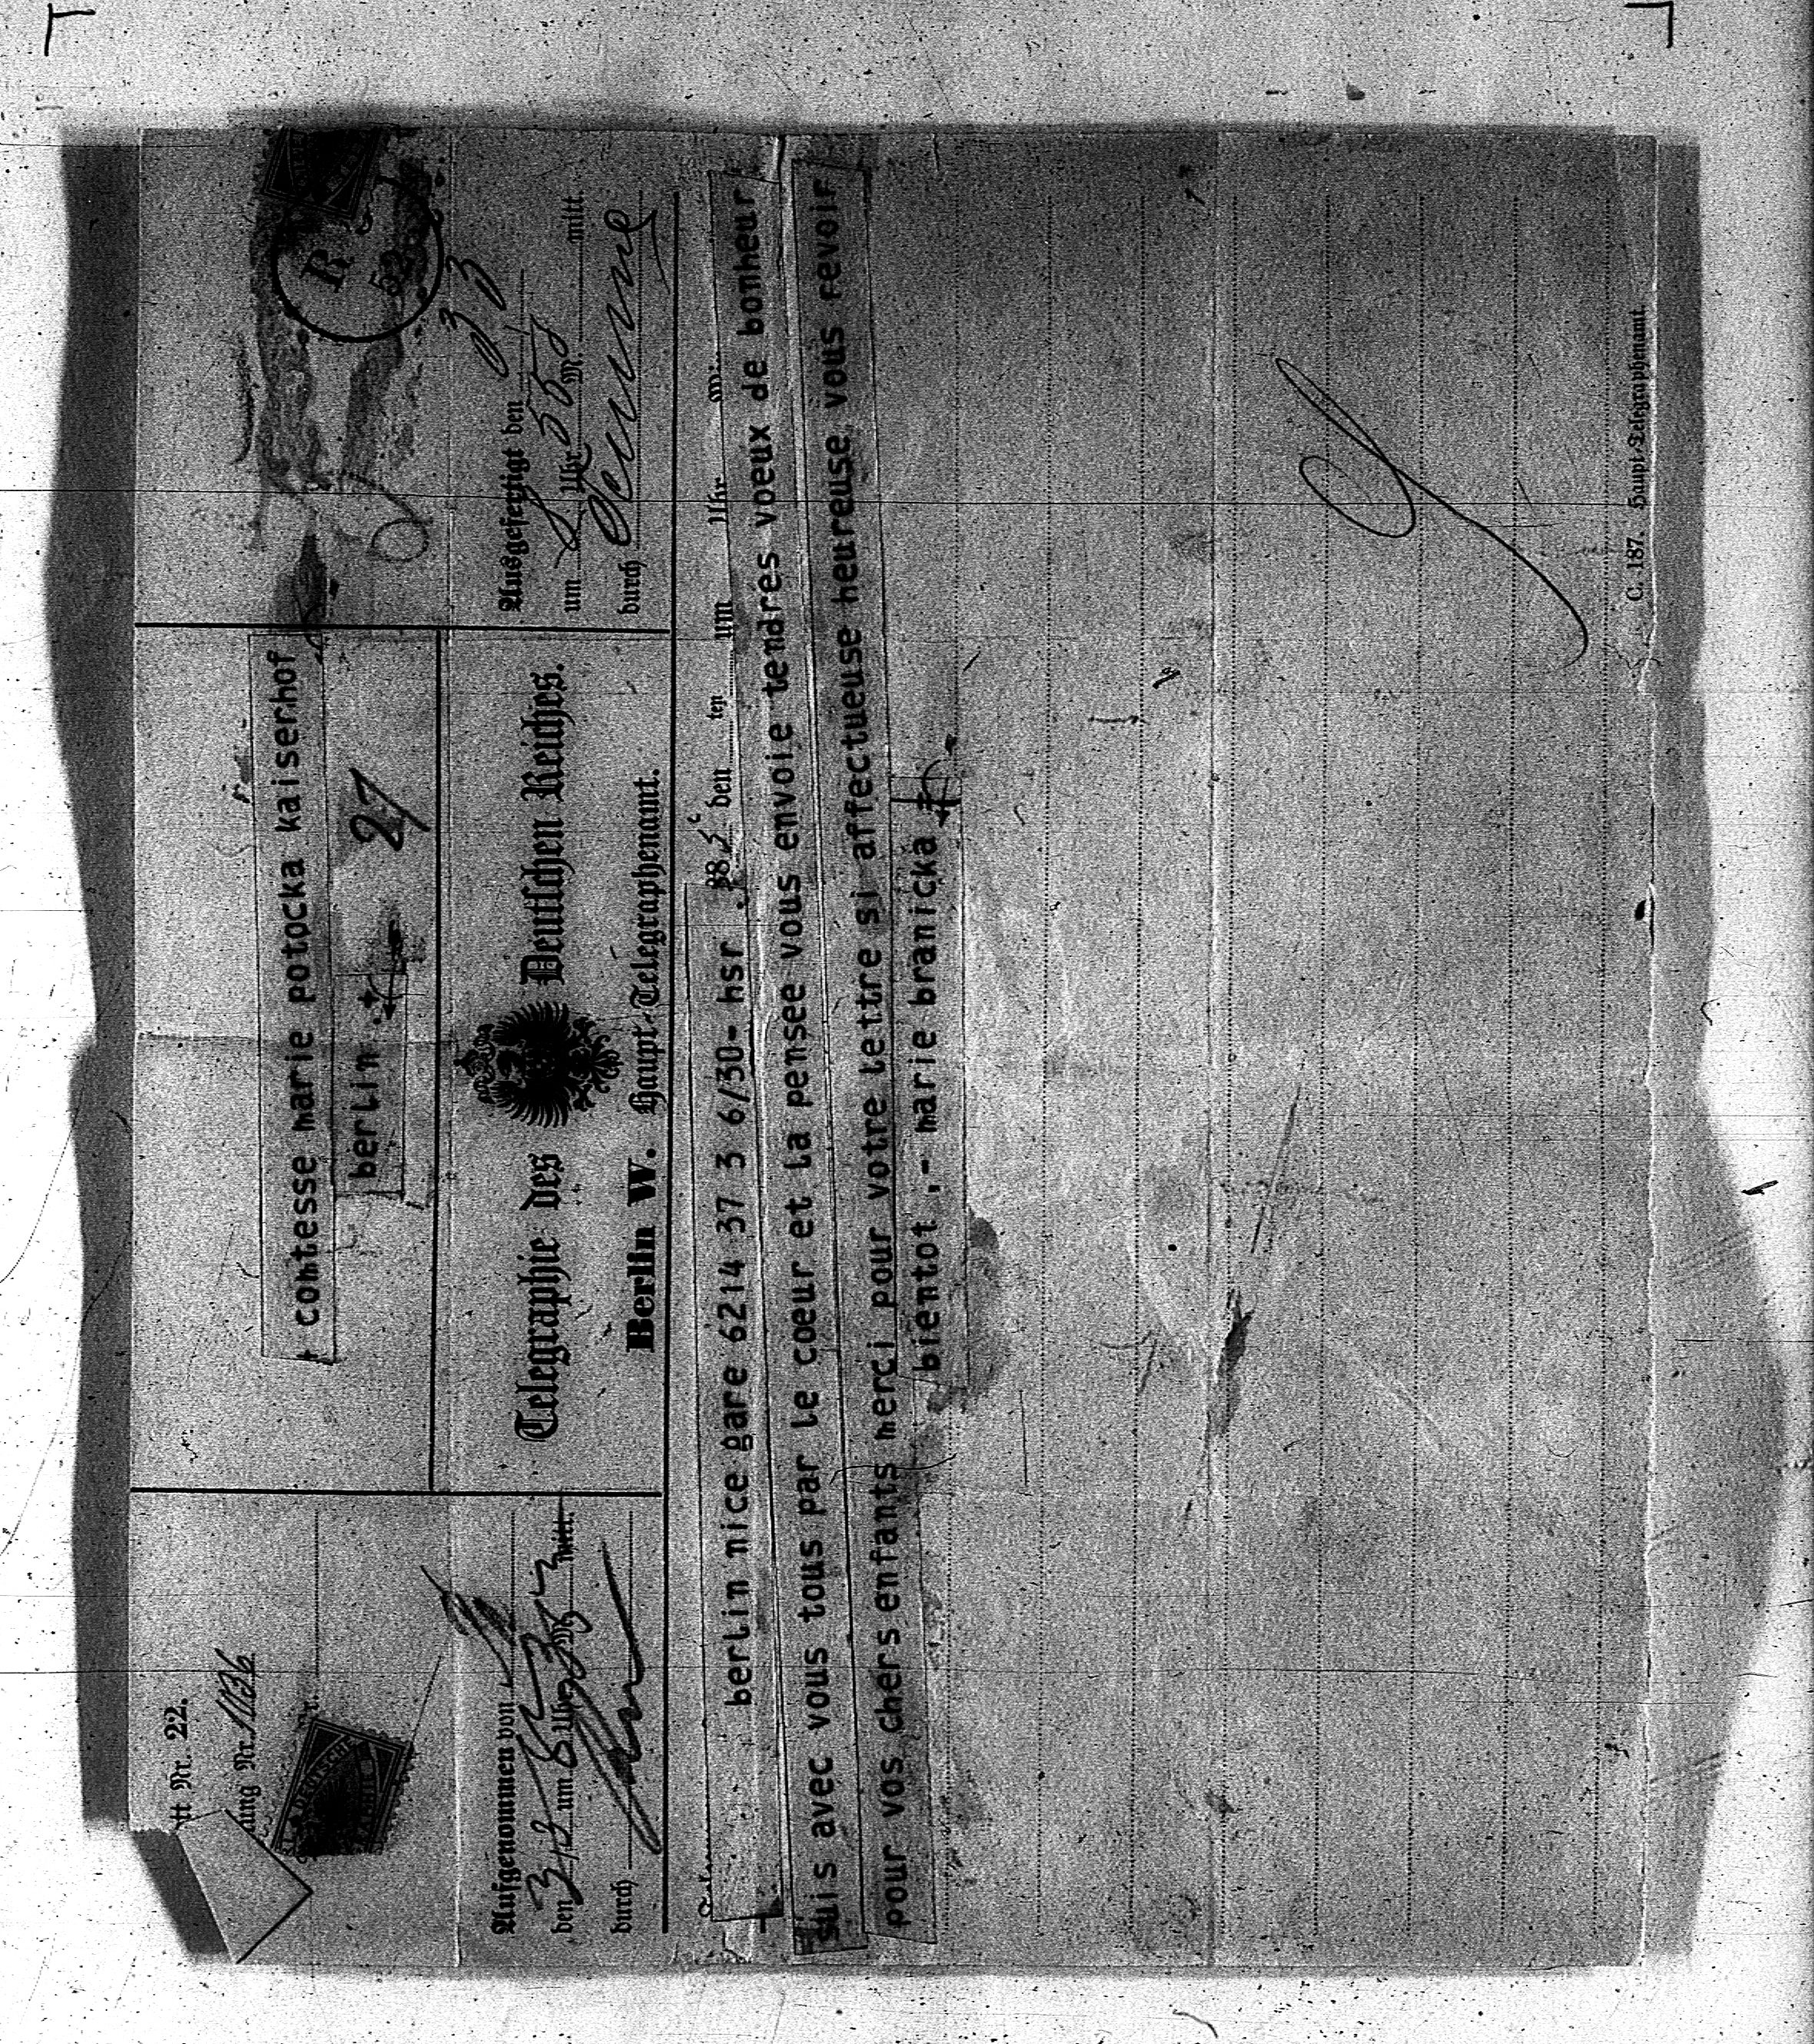 tt Nr. 22.
ung Nr. 1136
DEUTSCHE
+ comtesse marie potocka kaiserhof
berlin .+
27
R
53
Aufgenommen von
den 3/3 um 8 Uhr
mitt.
durch
Telegraphie des Deutschen Reiches.
Berlin W. Haupt-Telegraphenamt.
Ausgefertigt den
um 8 Uhr 55 M. mitt.
durch
berlin nice gare 6214 37 3 6/30- hsr .
88 den ten um Uhr
suis avec vous tous par le coeur et la pensee vous envoie tendres voeux de bonheur
pour vos chers enfants merci pour votre lettre si affectueuse heureuse vous revoir
bientot .- marie branicka +
C. 187. Haupt-Telegraphenamt.